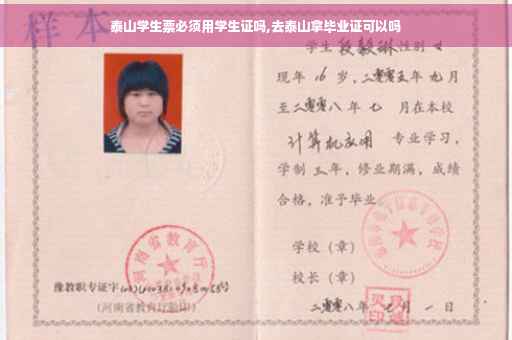 泰山学生票必须用学生证吗,去泰山拿毕业证可以吗
样本
学生 段毅琳 性别 女
现年 16 岁,二零零五年 九月
至二零零八年 七 月在本校
计算机应用 专业学习,
学制 三年,修业期满,成绩
合格,准予毕业
学校(章)
校长(章)
二零零八年 七 月 一 日
河南省教育厅
豫教职专证字
(河南省教育厅验印)